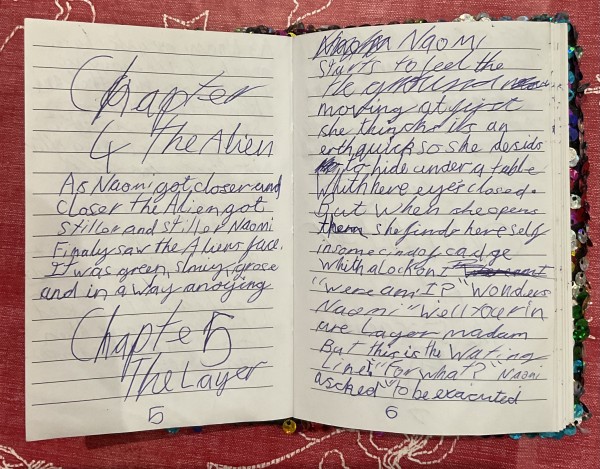 Chapter
4 The Alien
As Naomi got closer and
closer the Alien got
stiller and stiller Naomi
Finaly saw the Aliens face.
It was green, slmiy, grose
and in a way anoying
Chapter 5
The Layer
5
Naomi
starts to feel the
moving at first
she thinsks its an
erthquick so she desids
to hide under a table
whith here eyes closed.
But when she opens
them she finds hereself
in some cind of cadge
whith a lock on t
"were am I?" Wonders
Naomi "Well your in
are Layer madam
But this is the Wating
Line" "for what?" Naomi
ascked "to be exacuted
6